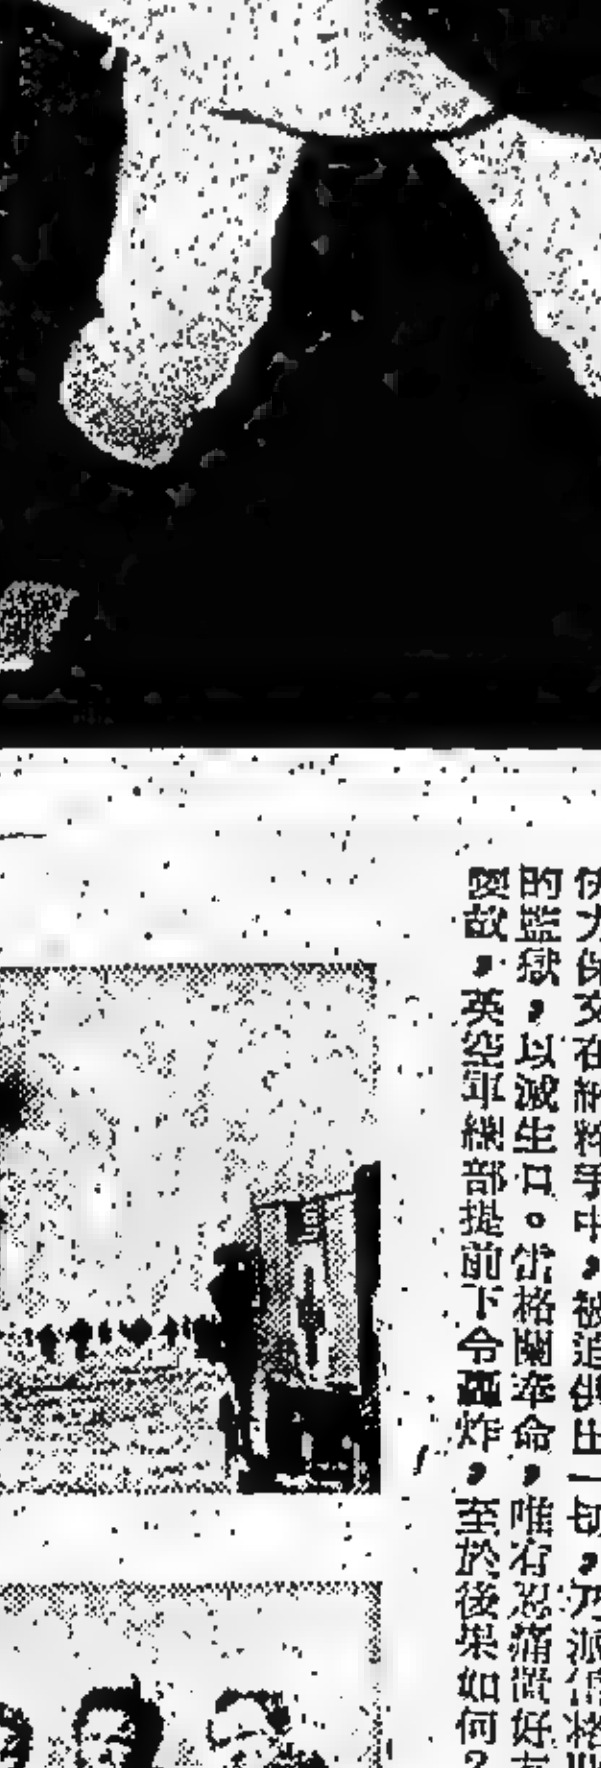 保文在納粹手中，被迫供出一切，乃派
的監獄，以滅生口。雷格蘭奉命，唯有忍痛置好友
變故，英空軍總部提前下令轟炸，至於後果如何？